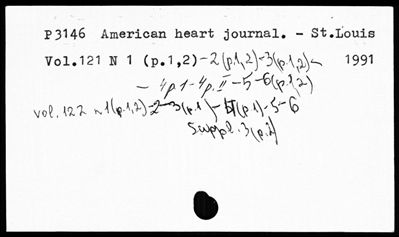 P3146 American heart journal. - St.Louis
Vol.121 N 1 (p.1,2)-2(p.1,2)-3(p.1,2)- 1991
- 4p.1-4p.II-5-6(p.1,2)
vol. 122 n1(p.1,2)-2-3(p.1)- (p.1)-5-6
Suppl. 3(p.2)